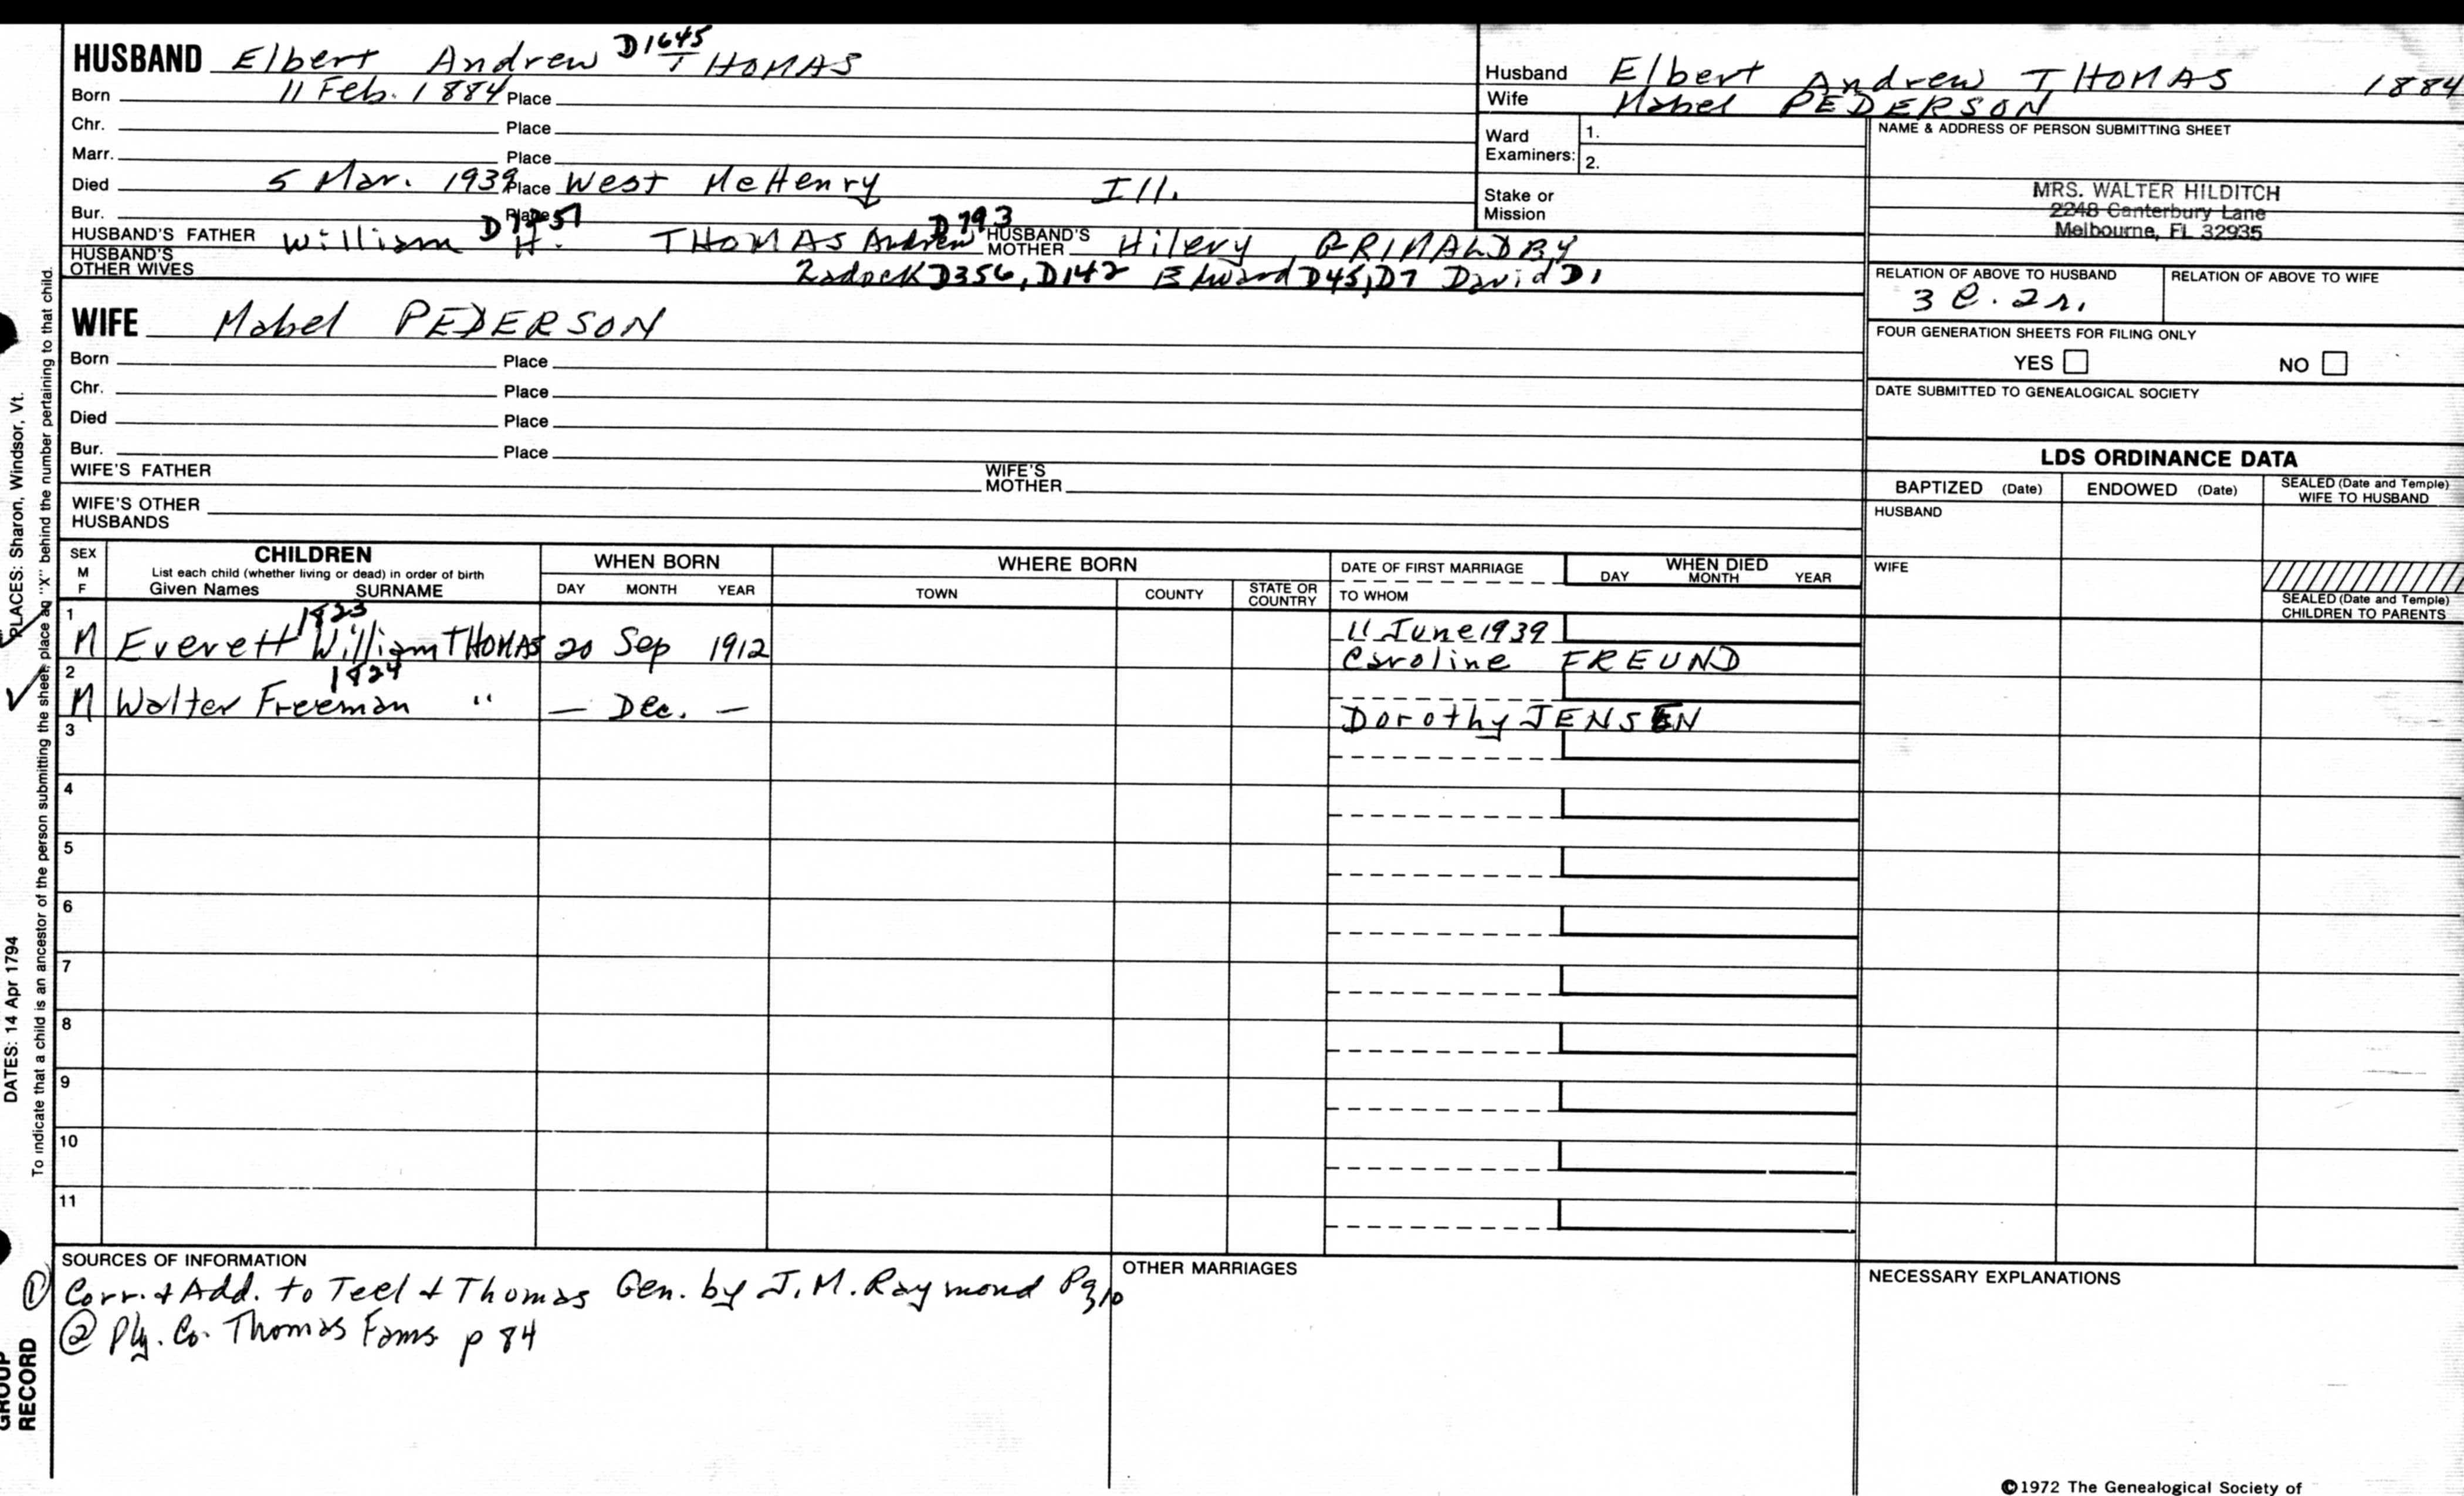 HUSBAND Elbert Andrew D1645 THOMAS
Born 11 Feb. 1884 Place
Chr. Place
Marr. Place
Died 5 Mar. 1939 Place West McHenry Ill.
Bur. Place
HUSBAND'S FATHER William H. THOMAS Andrew D793 HUSBAND'S MOTHER Hilery
HUSBAND'S OTHER WIVES Zadock D356, D142 Edward D45, D7 David D1
WIFE Mabel PEDERSON
Born Place
Chr. Place
Died Place
Bur. Place
WIFE'S FATHER WIFE'S MOTHER
WIFE'S OTHER HUSBANDS
Husband Elbert Andrew THOMAS 1884
Wife Mabel PEDERSON
Ward Examiners: 1.
2.
Stake or Mission
NAME & ADDRESS OF PERSON SUBMITTING SHEET
MRS. WALTER HILDITCH
2248 Canterbury Lane
Melbourne, FL 32935
RELATION OF ABOVE TO HUSBAND RELATION OF ABOVE TO WIFE
3 C. 2 r.
FOUR GENERATION SHEETS FOR FILING ONLY
YES NO
DATE SUBMITTED TO GENEALOGICAL SOCIETY
LDS ORDINANCE DATA
BAPTIZED (Date) ENDOWED (Date) SEALED (Date and Temple) WIFE TO HUSBAND
HUSBAND
WIFE
SEALED (Date and Temple) CHILDREN TO PARENTS
SEX M F CHILDREN WHEN BORN WHERE BORN DATE OF FIRST MARRIAGE WHEN DIED
List each child (whether living or dead) in order of birth
Given Names SURNAME DAY MONTH YEAR TOWN COUNTY STATE OR COUNTRY TO WHOM DAY MONTH YEAR
1 1823
M Everett William THOMAS 20 Sep 1912 11 June 1939
Caroline FREUND
2 1824
M Walter Freeman " — Dec. — Dorothy JENSEN
3
4
5
6
7
8
9
10
11
SOURCES OF INFORMATION
① Corr. & Add. to Teel & Thomas Gen. by J. M. Raymond Pg 310
② Ply. Co. Thomas Fams p 84
OTHER MARRIAGES
NECESSARY EXPLANATIONS
©1972 The Genealogical Society of
PLACES: Sharon, Windsor, Vt.
DATES: 14 Apr 1794
To indicate that a child is an ancestor of the person submitting the sheet, place an "X" behind the number pertaining to that child.
GROUP
RECORD